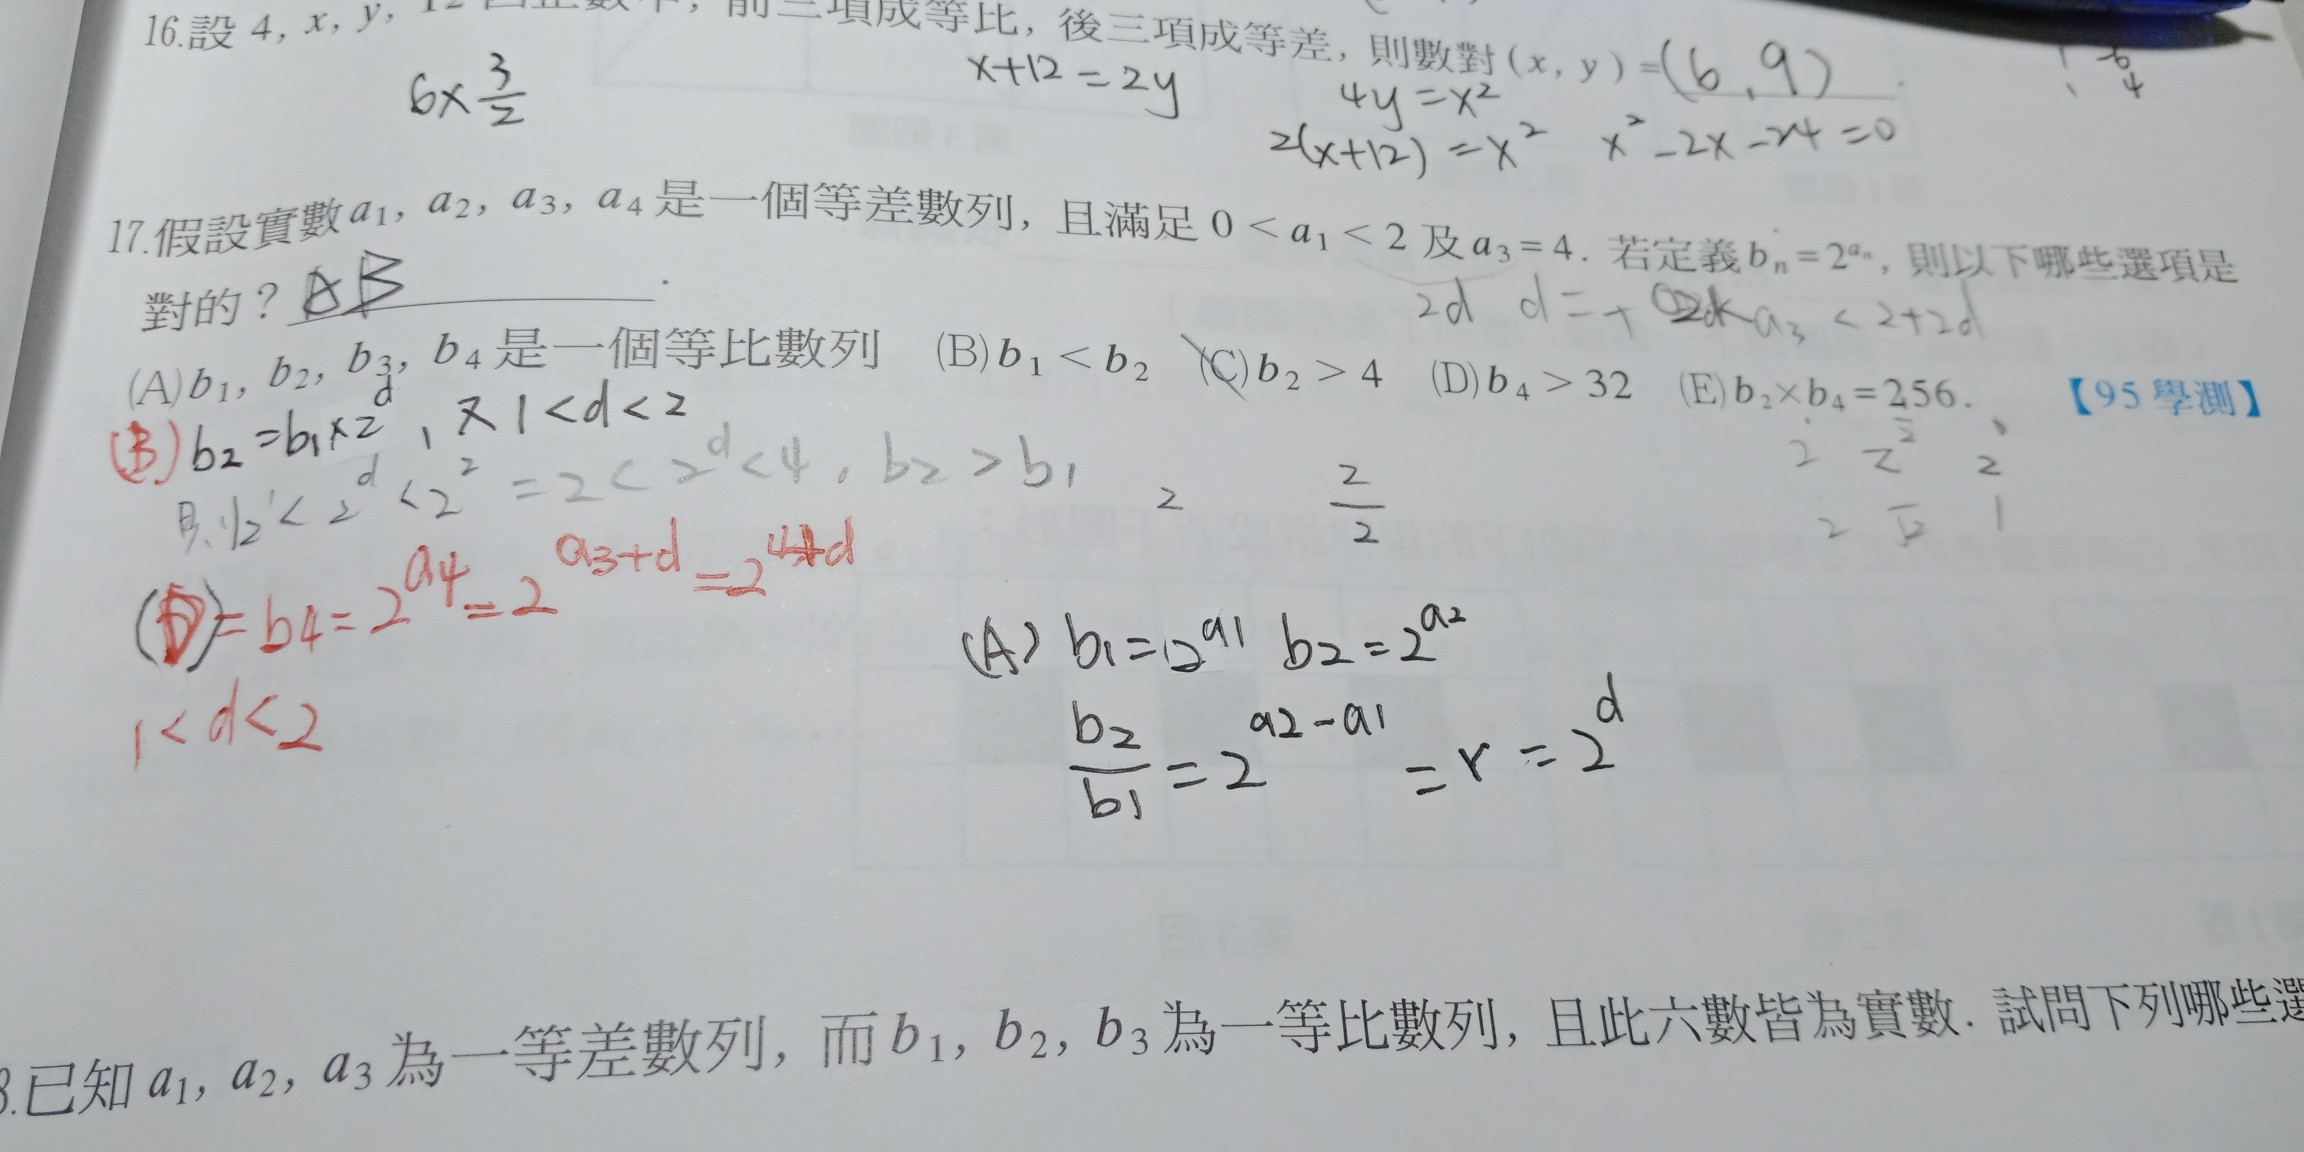 16.設 4, x, y, 12 四正數中, 前三項成等比, 後三項成等差, 則數對 (x, y) =(6,9).
6×3/2
x+12=2y
4y=x²
2(x+12)=x² x²-2x-24=0
17.假設實數a₁, a₂, a₃, a₄是一個等差數列, 且滿足 0<a₁<2 及a₃=4. 若定義bₙ=2^aₙ, 則以下哪些選項是
對的? AB.
2d d=+ a₃<2+2d
(A)b₁, b₂, b₃, b₄是一個等比數列 (B)b₁<b₂ (C)b₂>4 (D)b₄>32 (E)b₂×b₄=256. 【95 學測】
(B) b₂=b₁×2^d, 又1<d<2
則2¹<2^d<2²=2<2^d<4, b₂>b₁
2 2/2
(D)=b4=2^a4=2^a3+d=2^4+d
1<d<2
(A) b₁=2^a1 b₂=2^a2
b₂/b₁=2^a2-a1=r=2^d
8.已知a₁, a₂, a₃為一等差數列, 而b₁, b₂, b₃為一等比數列, 且此六數皆為實數. 試問下列哪些選